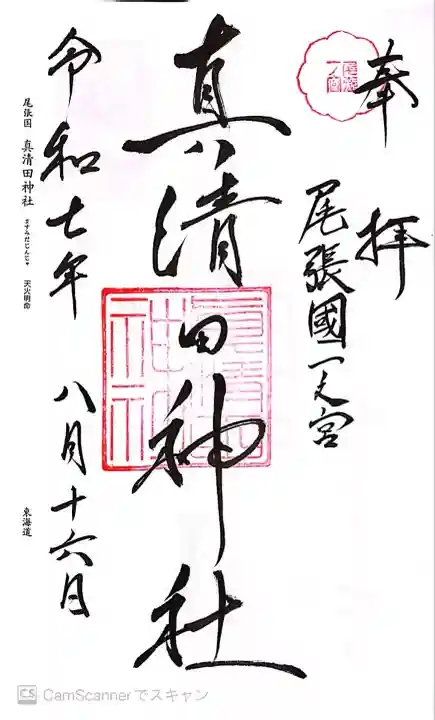 奉拝
尾張國一之宮
真清田神社
令和七年 八月十六日
尾張国 真清田神社 ますみだじんじゃ 天火明命
東海道
尾張
一ノ宮
CS CamScannerでスキャン